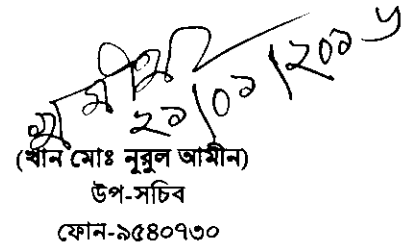 ২১/০১/২০১৬
(খান মোঃ নূরুল আমীন)
উপ-সচিব
ফোন-৯৫৪০৭৩০